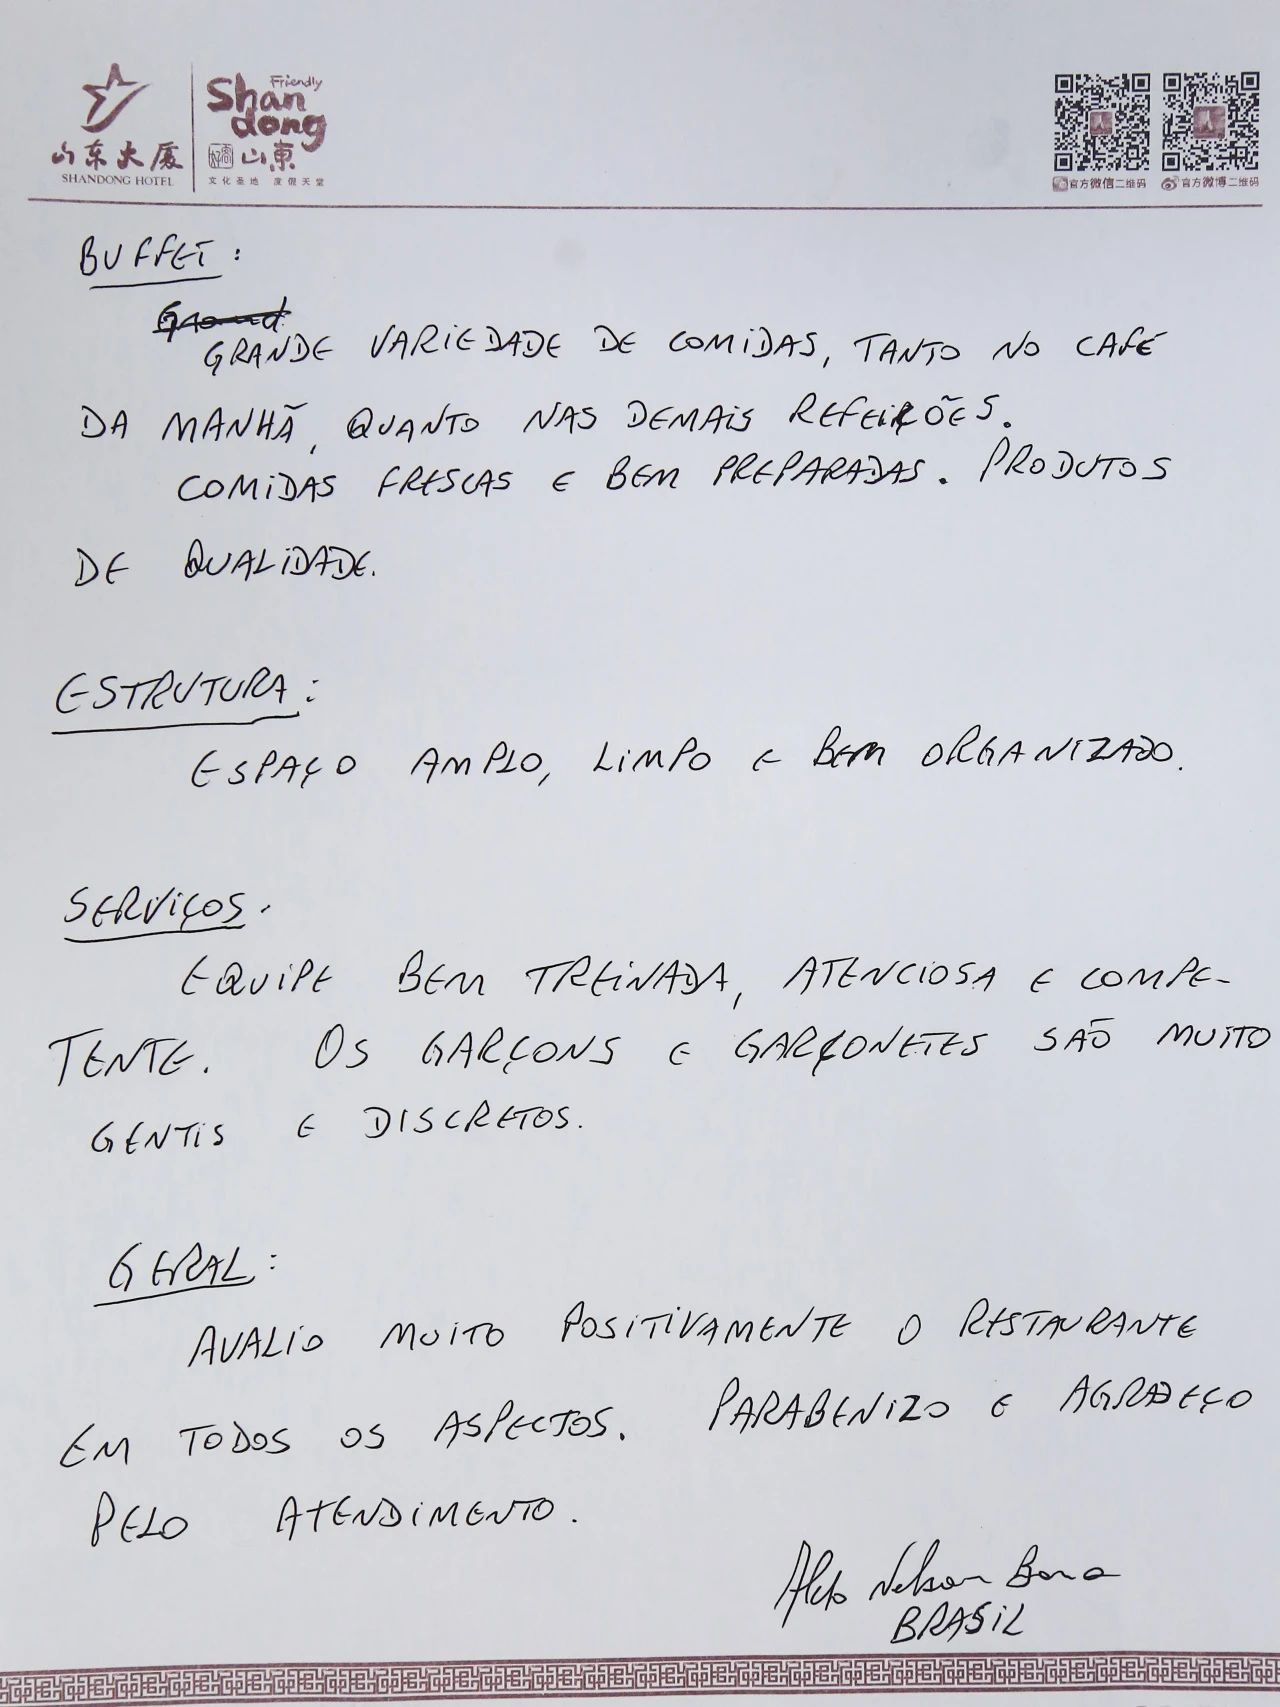 山东大厦
SHANDONG HOTEL
Friendly
Shan
dong
好客 山東
文化圣地 度假天堂
官方微信二维码
官方微博二维码
BUFFET:
GRANDE VARIEDADE DE COMIDAS, TANTO NO CAFÉ
DA MANHÃ, QUANTO NAS DEMAIS REFEIÇÕES.
COMIDAS FRESCAS E BEM PREPARADAS. PRODUTOS
DE QUALIDADE.
ESTRUTURA:
ESPAÇO AMPLO, LIMPO E BEM ORGANIZADO.
SERVIÇOS.
EQUIPE BEM TREINADA, ATENCIOSA E COMPE-
TENTE. OS GARÇONS E GARÇONETES SÃO MUITO
GENTIS E DISCRETOS.
GERAL:
AVALIO MUITO POSITIVAMENTE O RESTAURANTE
EM TODOS OS ASPECTOS. PARABENIZO E AGRADEÇO
PELO ATENDIMENTO.
Nelson Bona
BRASIL